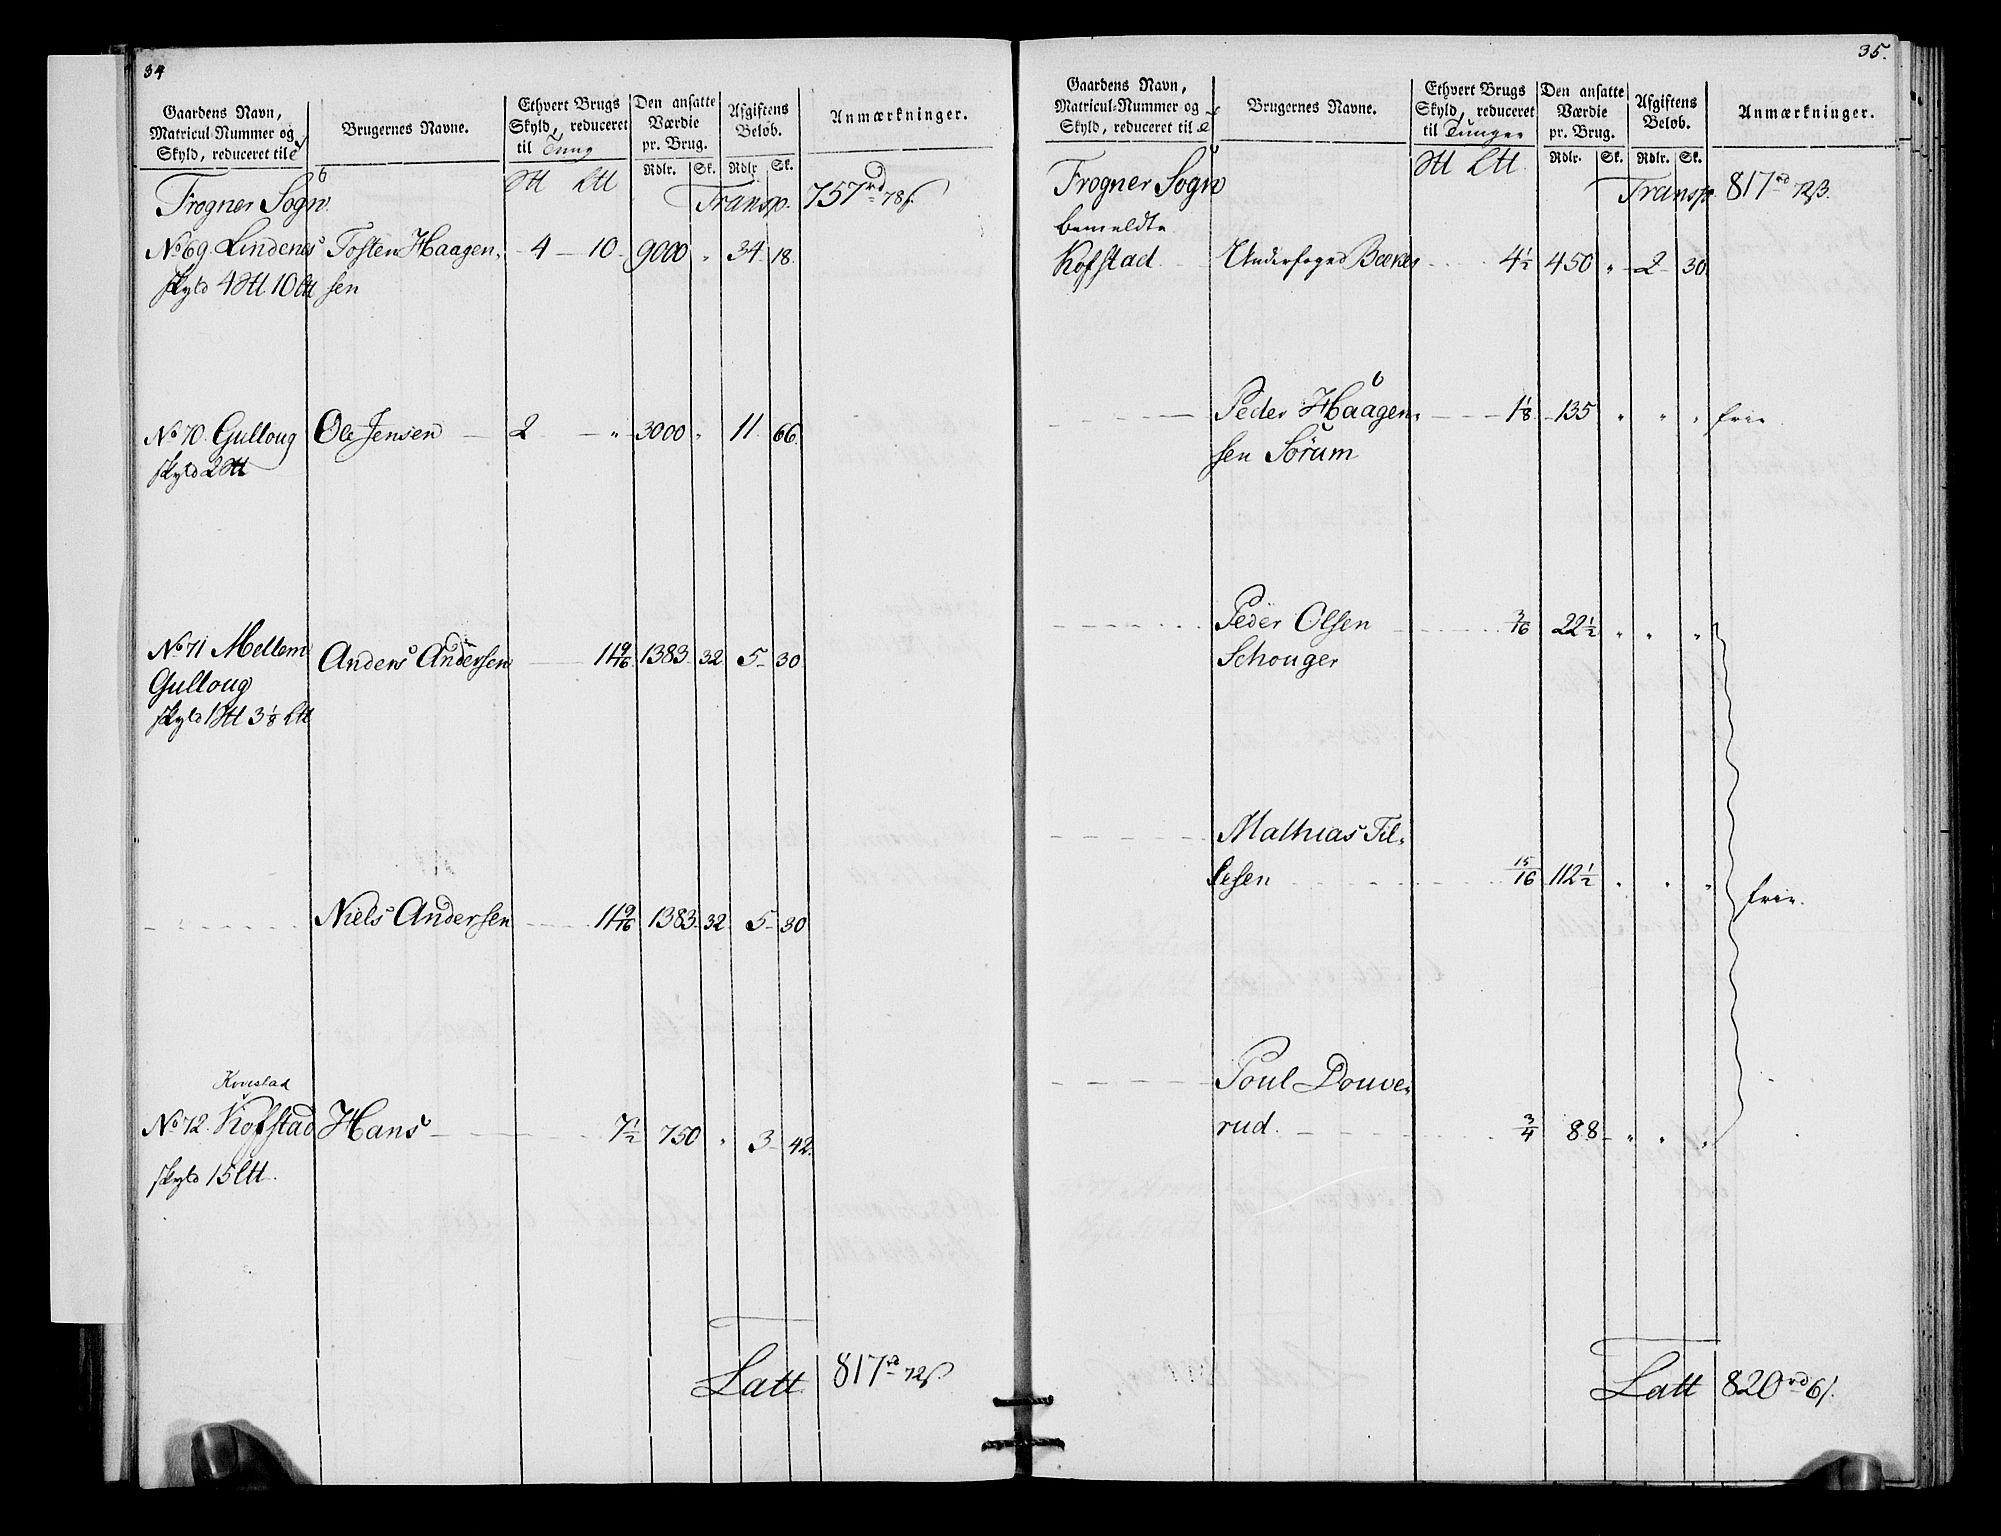 34
Gaardens Navn, Matricul-Nummer og Skyld, reduceret til
Brugernes Navne.
Ethvert Brugs Skyld, reduceret til Tung
Den ansatte Værdie pr. Brug.
Afgiftens Beløb.
Anmærkninger.
Rdlr. Sk. Rdlr Sk.
Frogner Sogn
Transp. 757 rd 78 s.
No 69. Lindenes Tosten Haagen- 4 10 9000 " 34 18.
skyld 4 10 sen
No 70. Gulloug Ole Jensen 2 " 3000 " 11 66.
skyld 2
No 71 Mellem Anders Andersen 11 9/16 1383 32 5 30
Gulloug
skyld 1 3 1/8
Niels Andersen 11 9/16 1383 32 5 30
Kovestad
No 72. Kofstad Hans 7 1/2 750 " 3 42.
skyld 15
Latt 817 rd 72 s
35.
Gaardens Navn, Matricul-Nummer og Skyld, reduceret til
Brugernes Navne.
Ethvert Brugs Skyld, reduceret til Tunger
Den ansatte Værdie pr. Brug.
Afgiftens Beløb.
Anmærkninger.
Rdlr. Sk. Rdlr. Sk.
Frogner Sogn
Transp. 817 rd 72 ß.
bemeldte
Kofstad Underfoged 4 1/2 450 " 2 30
Peder Haagen- 1 1/8 135 " " " frie
sen Sørum
Peder Olsen 3/16 22 1/2 " " "
Schouger
Mathias Til-
lesen 15/16 112 1/2 " " " frie.
Poul Douve-
rud. 3/4 88 " " "
Latt 820 rd 6 s.